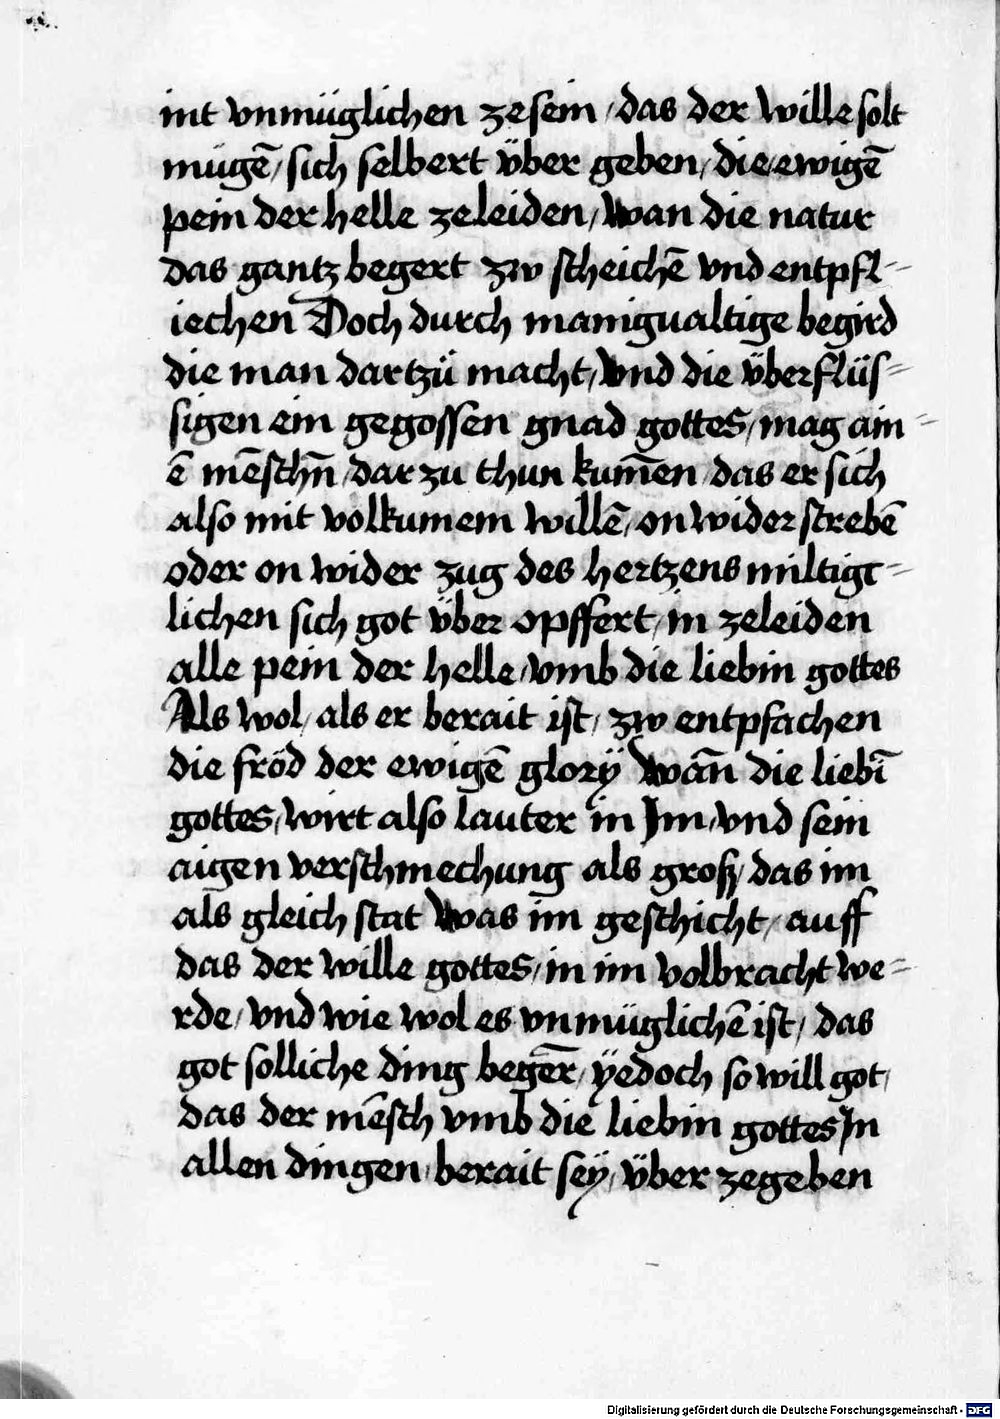 int vnmüglichen ze sein / das der wille solt
mügē / sich selbert über geben / die ewigē
pein der helle ze leiden / wan die natur
das gantz begert zw scheichē vnd entpfl=
iechen Doch durch manigualtige begird
die man dartzü macht / vnd die überflüs=
sigen ein gegossen gnad gottes / mag ain=
ē mēschn̄ / dar zu thun kum̄en / das er sich
also mit volkumem willē / on wider strebē
oder on wider zug des hertzens miltigt=
lichen sich got über opffert / in ze leiden
alle pein der helle / vmb die liebin gottes
Als wol / als er berait ist / zw entpfachen
die fröd der ewigē glory wān die liebī
gottes / wirt also lauter in Jm / vnd sein
aigen verschmechung als groß / das im
als gleich stat was im geschicht / auff
das der wille gottes / in im volbracht we=
rde / vnd wie wol es vnmüglichē ist / das
got solliche ding begēr / yedoch so will got /
das der mēsch vmb die liebin gottes Jn
allen dingen / berait seÿ / über ze geben
Digitalisierung gefördert durch die Deutsche Forschungsgemeinschaft - DFG